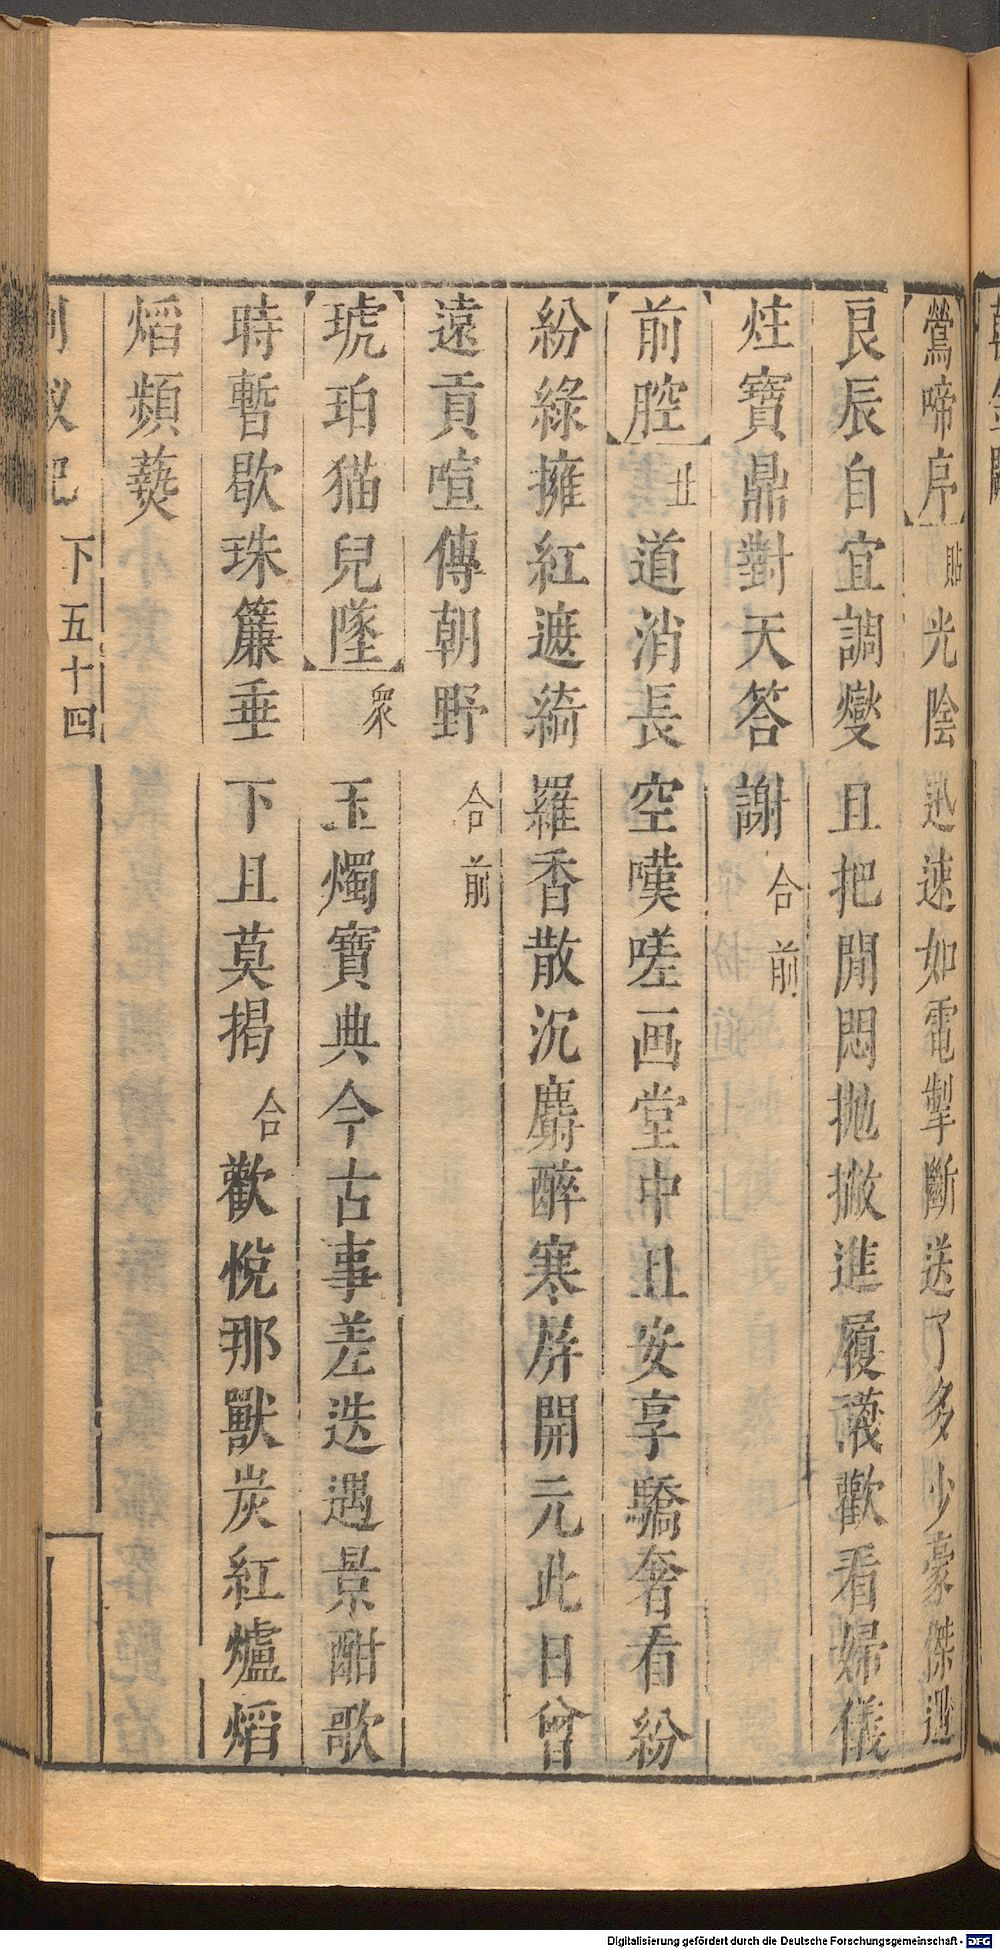 鶯啼序貼光陰迅速如電掣斷送了多少豪傑遇
良辰自宜調燮且把閒悶拋撇進履襪歡看婦儀
炷寶鼎對天答謝合前
前腔丑道消長空嘆嗟画堂中且安享驕奢看紛
紛綠擁紅遮綺羅香散沉麝醉寒屏開元此日曾
遠貢喧傳朝野合前
琥珀猫兒墜衆玉燭寶典今古事差迭遇景酣歌
時暫歇珠簾垂下且莫揭合歡悅那獸炭紅爐熖
熖頻爇
下五十四
Digitalisierung gefördert durch die Deutsche Forschungsgemeinschaft - DFG